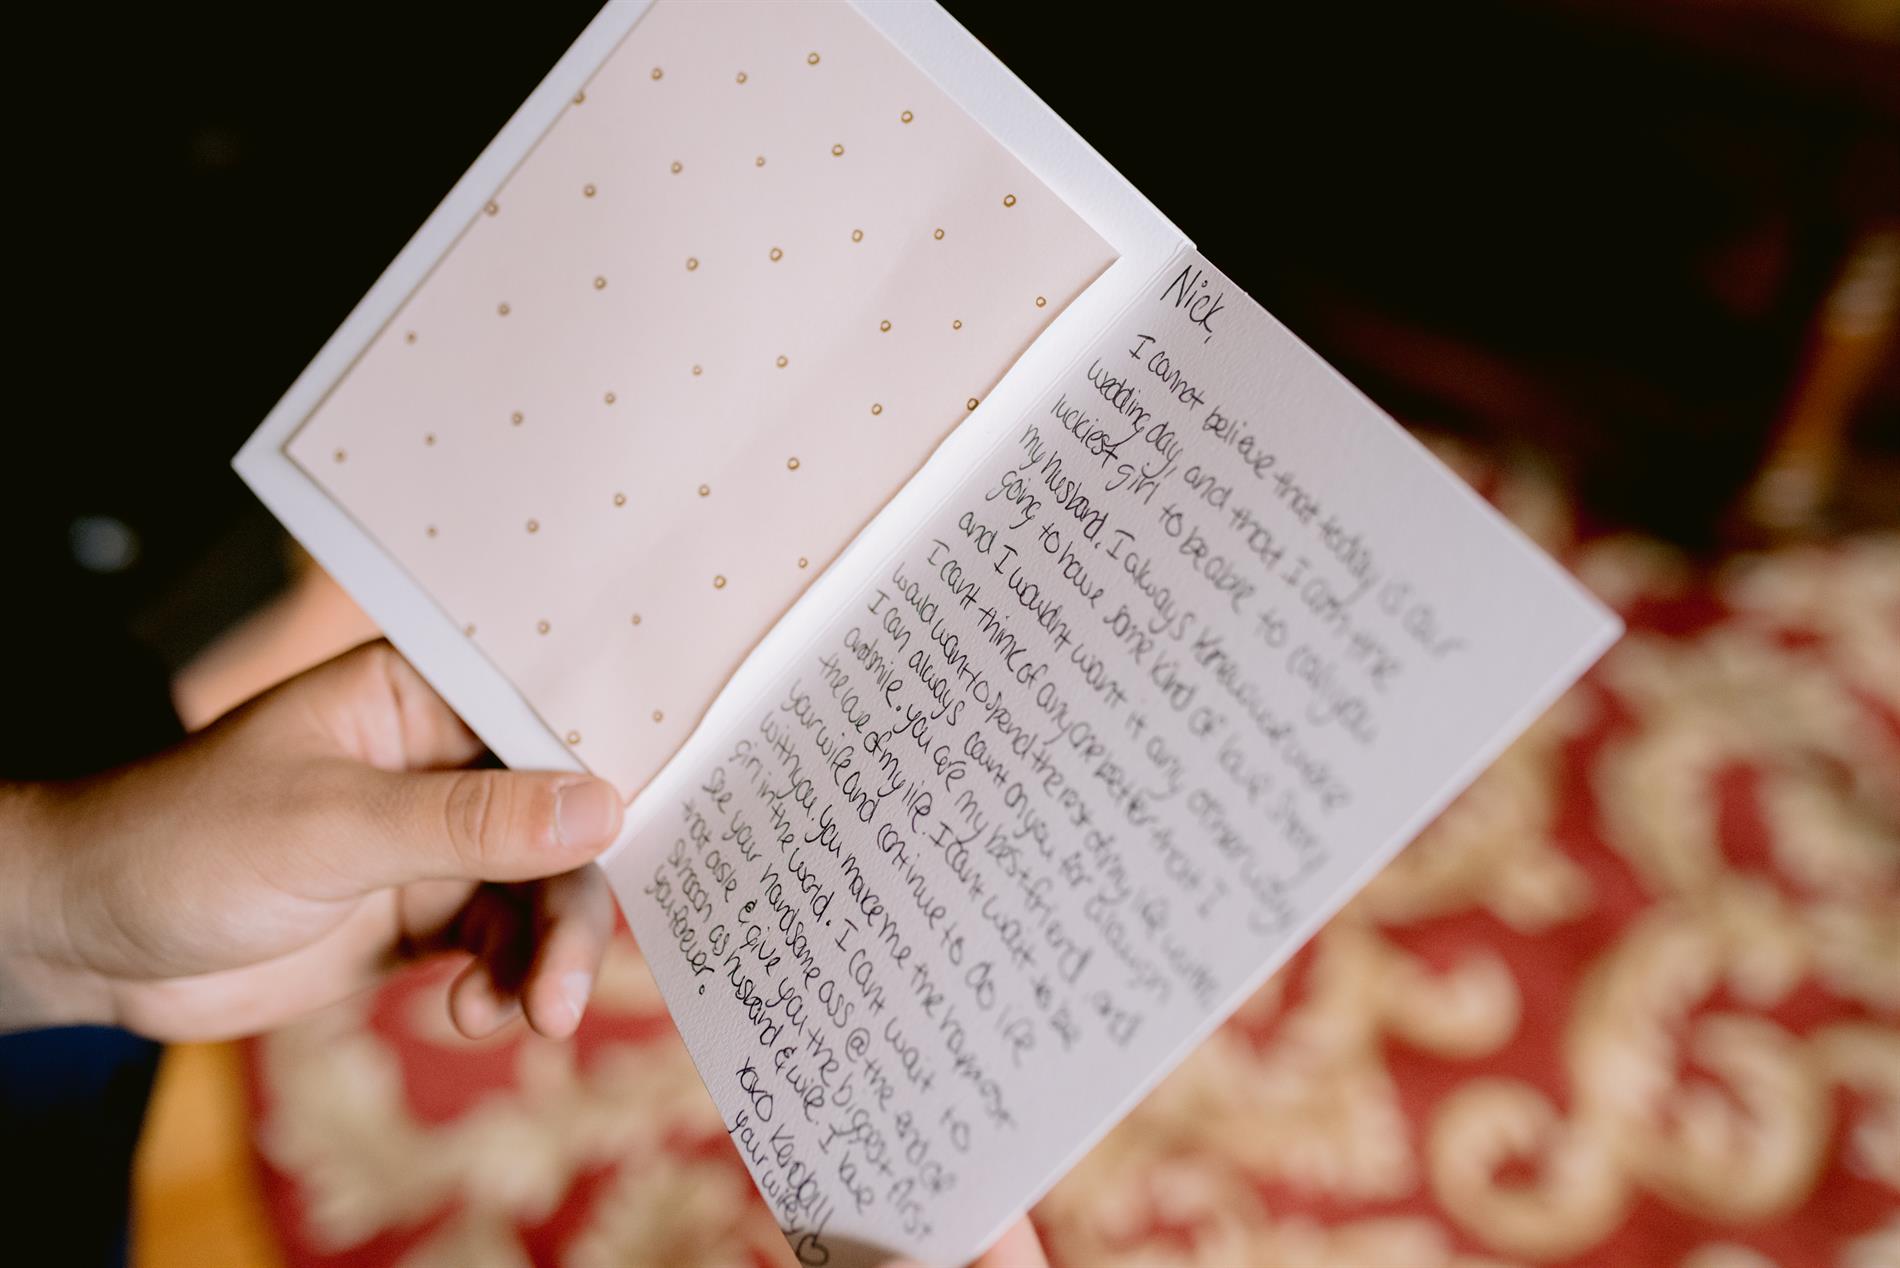 Nick,
I cannot believe that today is our
wedding day, and that I am the
luckiest girl to be able to call you
my husband. I always knew we were
going to have some kind of love story
and I wouldnt want it any other way
I cant think of anyone better that I
would want to spend the rest of my life with
I can always count on you for a laugh
and smile. you are my best friend and
the love of my life. I cant wait to be
your wife and continue to do life
with you. you make me the happiest
girl in the world. I cant wait to
see your handsome ass @ the end of
that aisle & give you the biggest first
smooch as husband & wife. I love
you forever.
xoxo Kendall
your wifey♡